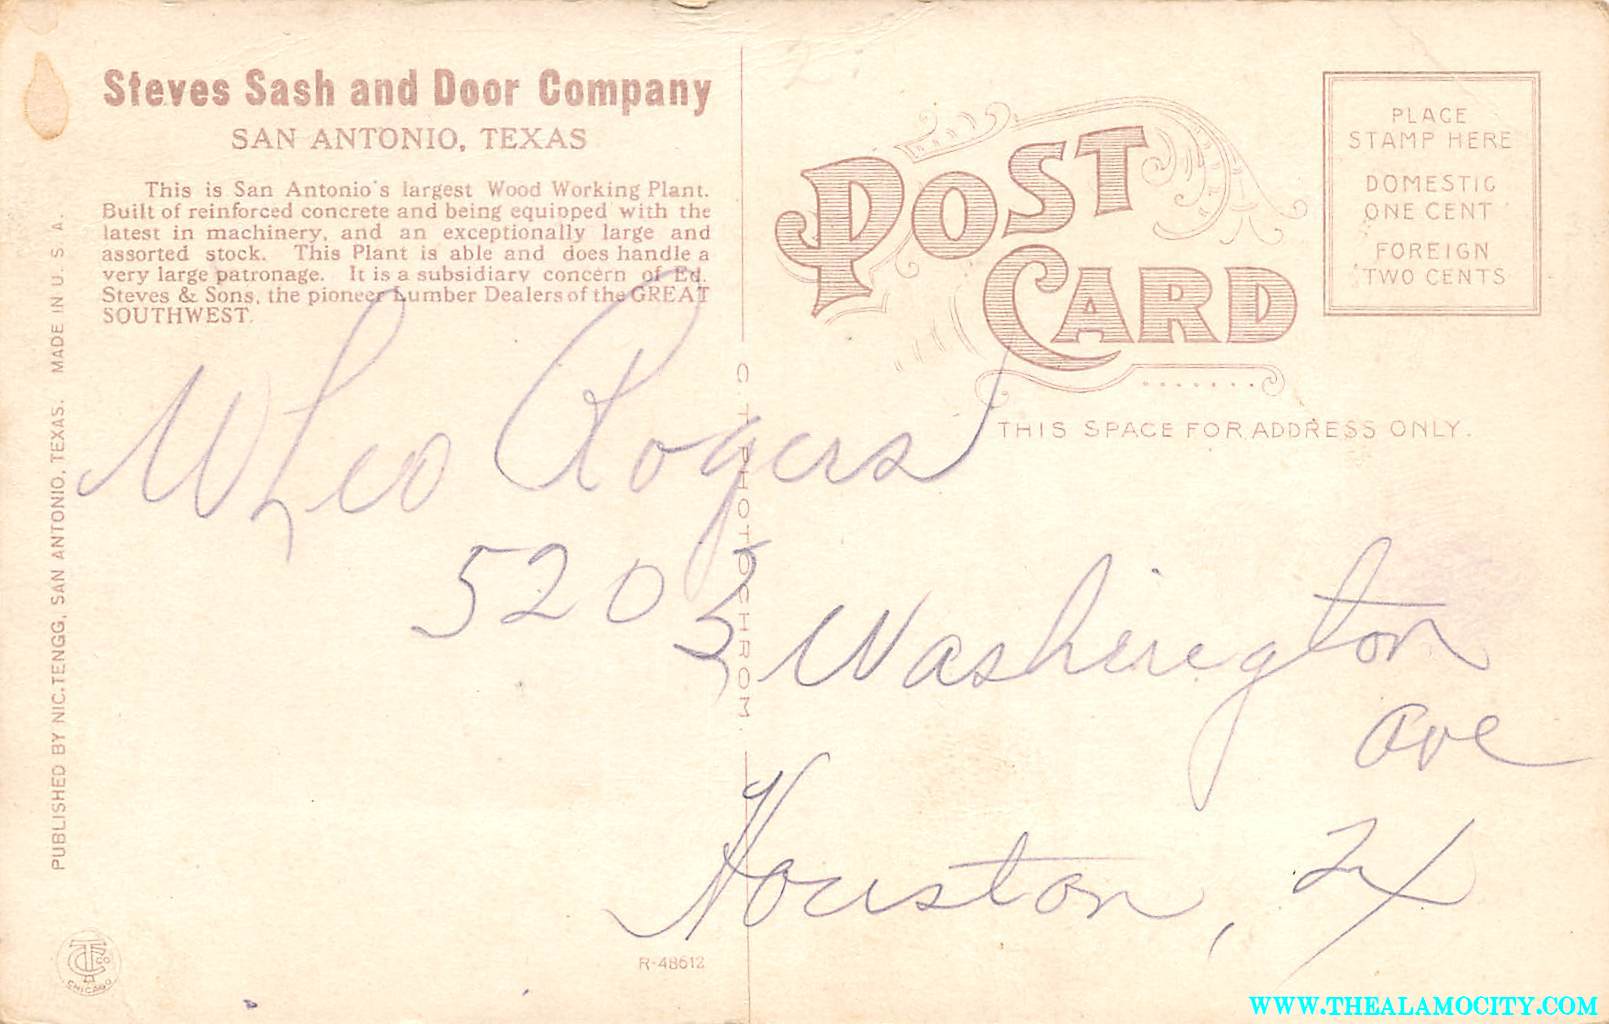 Steves Sash and Door Company
SAN ANTONIO, TEXAS
This is San Antonio's largest Wood Working Plant.
Built of reinforced concrete and being equipped with the
latest in machinery, and an exceptionally large and
assorted stock. This Plant is able and does handle a
very large patronage. It is a subsidiary concern of Ed.
Steves & Sons, the pioneer Lumber Dealers of the GREAT
SOUTHWEST.
PUBLISHED BY NIC. TENGG, SAN ANTONIO, TEXAS. MADE IN U. S. A.
POST
CARD
PLACE
STAMP HERE
DOMESTIC
ONE CENT
FOREIGN
TWO CENTS
THIS SPACE FOR ADDRESS ONLY.
C T PHOTOCHROM
W Leo Rogers
5203 Washington
Ave
Houston, TX
R-48612
CT CO
CHICAGO
WWW.THEALAMOCITY.COM